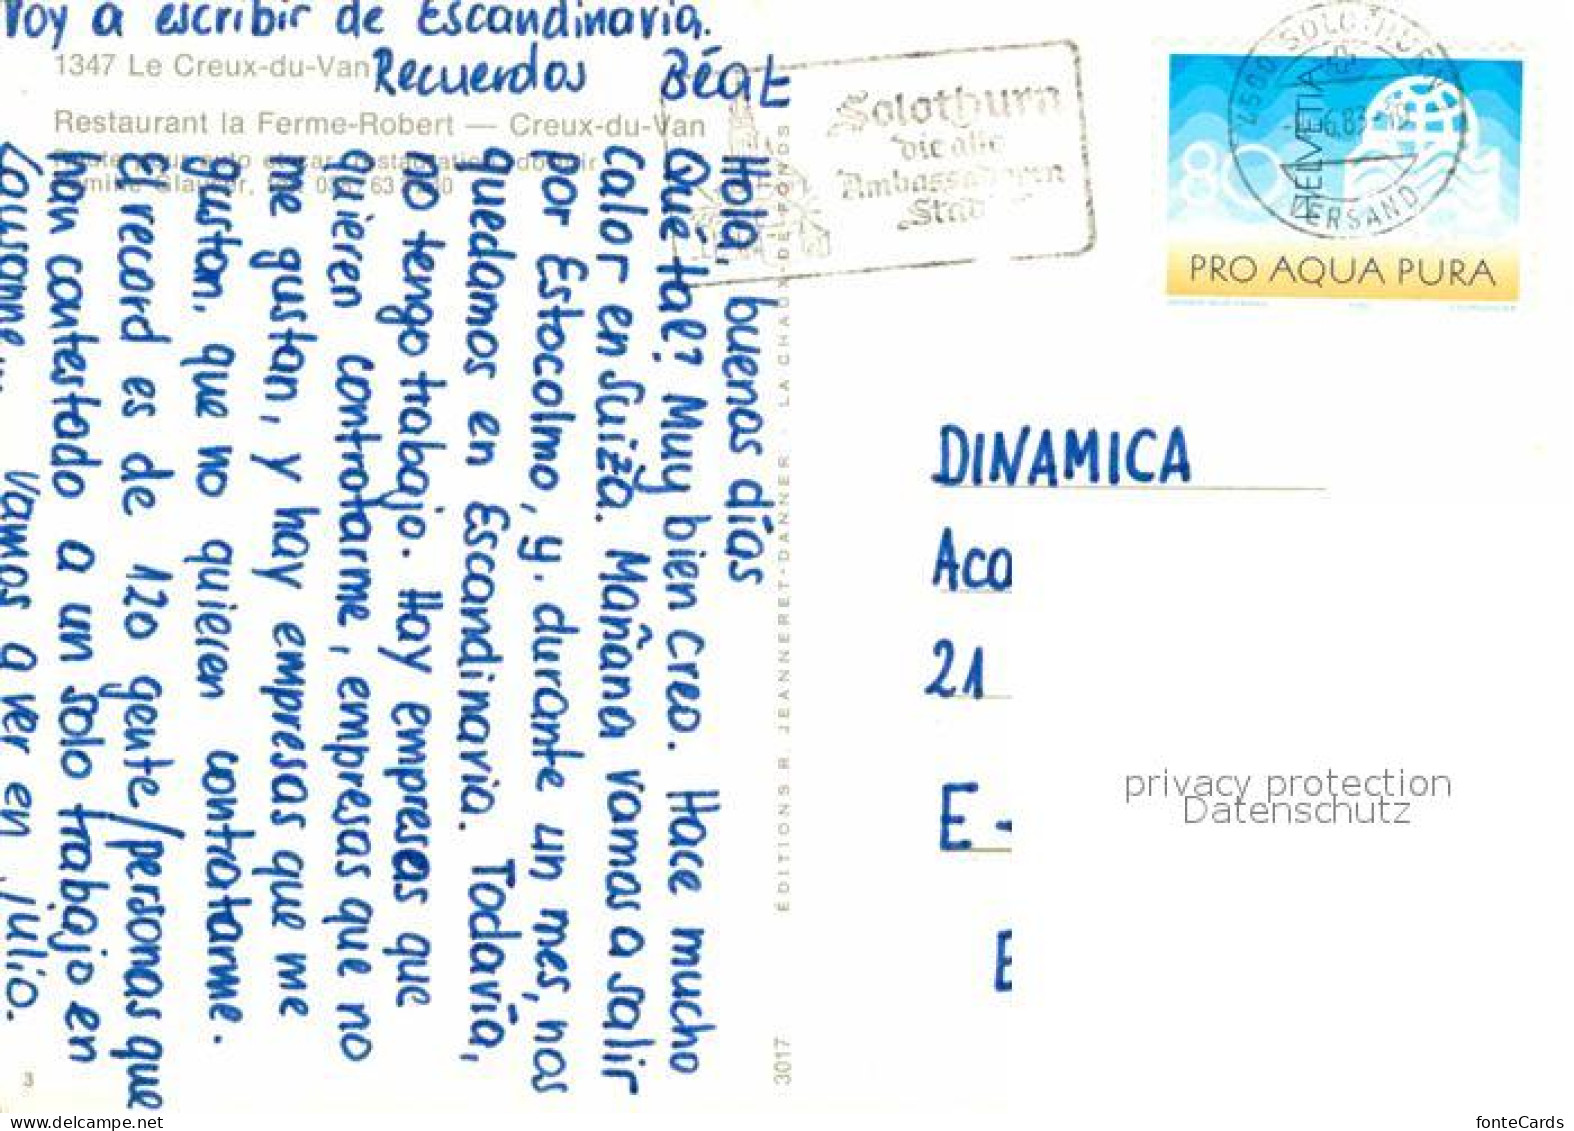 Hola, buenas días
Qué tal? Muy bien creo. Hace mucho
calor en Suiza. Mañana vamos a salir
por Estocolmo, y. durante un mes, nos
quedamos en Escandinavia. Todavía,
no tengo trabajo. Hay empresas que
quieren contratarme, empresas que no
me gustan, y hay empresas que me
gustan, que no quieren contratarme.
El record es de 120 gente/personas que
han contestado a un solo trabajo en
Lausanne... Vamos a ver en julio.
Voy a escribir de Escandinavia.
Recuerdos Béat
1347 Le Creux-du-Van
Restaurant la Ferme-Robert — Creux-du-Van
EDITIONS R. JEANNERET-DANNER - LA CHAUX-DE-FONDS
3017
3
Solothurn
die alte
Ambassadoren
Stadt
4500 SOLOTHURN
6.83
VERSAND
HELVETIA
80
PRO AQUA PURA
DINAMICA
Aco
21
E-
E
privacy protection
Datenschutz
fonteCards